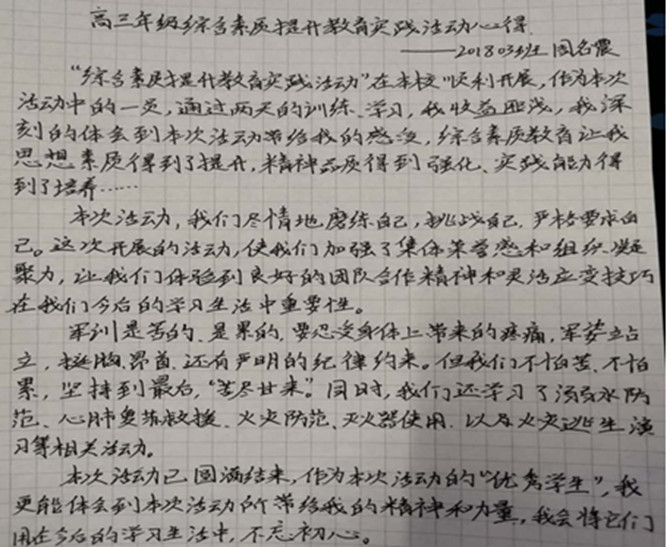 高三年级综合素质提升教育实践活动心得
——201803班 周名震
“综合素质提升教育实践活动”在本校顺利开展，作为本次
活动中的一员，通过两天的训练、学习，我收益匪浅，我深
刻的体会到本次活动带给我的感受，综合素质教育让我
思想素质得到了提升，精神品质得到强化、实践能力得
到了培养……
本次活动，我们尽情地磨练自己，挑战自己，严格要求自
己。这次开展的活动，使我们加强了集体荣誉感和组织凝
聚力，让我们体验到良好的团队合作精神和灵活应变技巧
在我们今后的学习生活中重要性。
军训是苦的、是累的，要忍受身体上带来的疼痛，军姿站
立，挺胸、昂首，还有严明的纪律约束。但我们不怕苦、不怕
累，坚持到最后，“苦尽甘来”。同时，我们还学习了溺水防
范、心肺复苏救援、火灾防范、灭火器使用、以及火灾逃生演
习等相关活动。
本次活动已圆满结束，作为本次活动的“优秀学生”，我
更能体会到本次活动所带给我的精神和力量，我会将它们
用在今后的学习生活中，不忘初心。